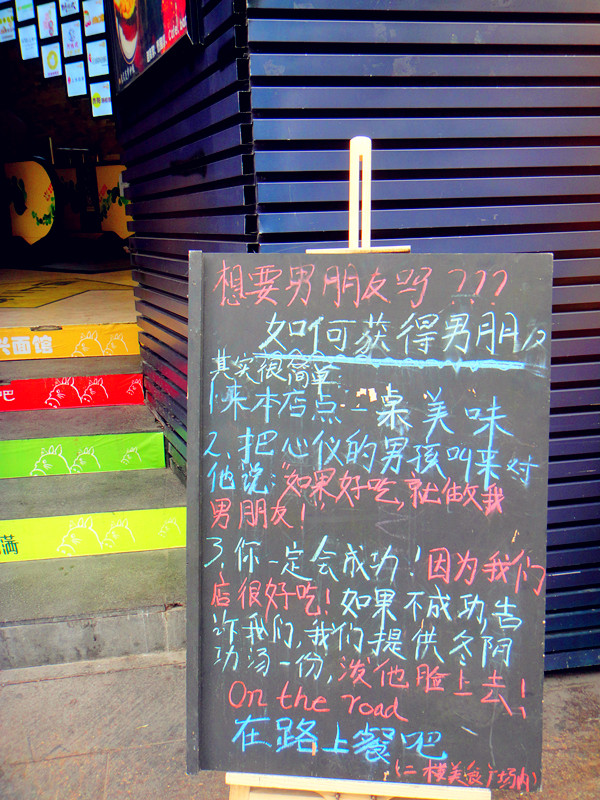 兴面馆
吧
满
想要男朋友吗???
如何获得男朋友
其实很简单
1、来本店点一桌美味
2、把心仪的男孩叫来对
他说:“如果好吃,就做我
男朋友!”
3、你一定会成功!因为我们
店很好吃!如果不成功,告
诉我们,我们提供冬阴
功汤一份,泼他脸上去!
On the road
在路上餐吧
(二楼美食广场内)